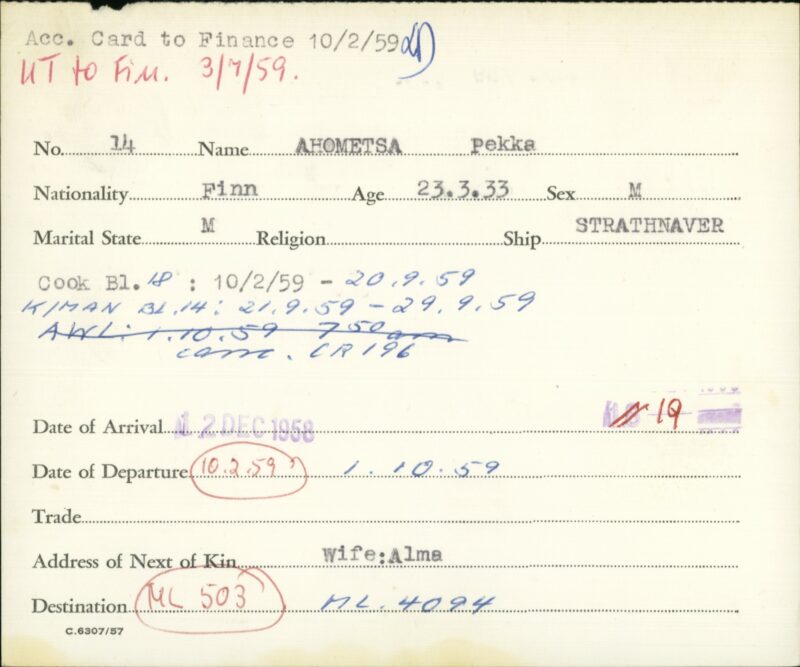 Acc. Card to Finance 10/2/59
UT to Fin. 3/7/59.
No. 14 Name AHOMETSA Pekka
Nationality Finn Age 23.3.33 Sex M
Marital State M Religion Ship STRATHNAVER
Cook Bl. 18 : 10/2/59 - 20.9.59
K/MAN BL.14: 21.9.59 - 29.9.59
AWL: 1.10.59 750 am
canc. CR 196
Date of Arrival 12 DEC 1958 19
Date of Departure 10.2.59 1.10.59
Trade
Address of Next of Kin Wife:Alma
Destination ML 503 ML.4094
C.6307/57